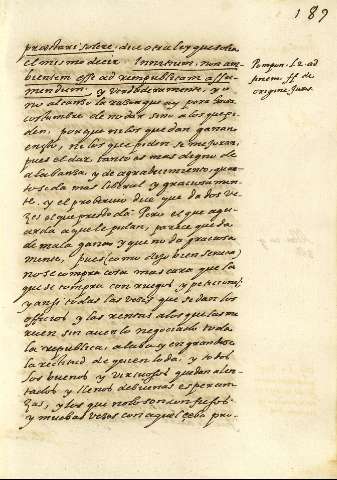 189
præstari solere, dice otra ley que
el mismo decir. Invitum, non am-
bientem esse ad rempublicam assu-
mendum; y verdaderamente, yo
no alcanso la razon que ay para
costumbre de no dar sino a los que pi-
den, porque ni los que dan ganan
en esso, ni los que piden se mejoran,
pues el dar, tanto es mas digno de
alabanza, y de agradecimiento, quan-
to se da mas liberal y graciosamen-
te. y el proverbio dice que da dos ve-
zes el que presto da: Pero el que agu-
arda a que le pidan, parece que da
de mala gana y que no da graciosa-
mente, pues (como dijo bien seneca)
no se compra cosa mas cara que la
que se compra con ruegos y peticiones
y ansi todas las vezes que se dan los
officios y las rentas a los que las me-
recen sin averlo negociado toda
la republica, alaba y engrandece
la rectitud de quien lo da, y todos
los buenos y virtuosos quedan alen-
tados y llenos de buenas esperan-
zas, y los que no lo son confusos
y muchas vezes con aquel cebo pro-
Pompon. l. 2. ad
finem. ff de
origine Juris.